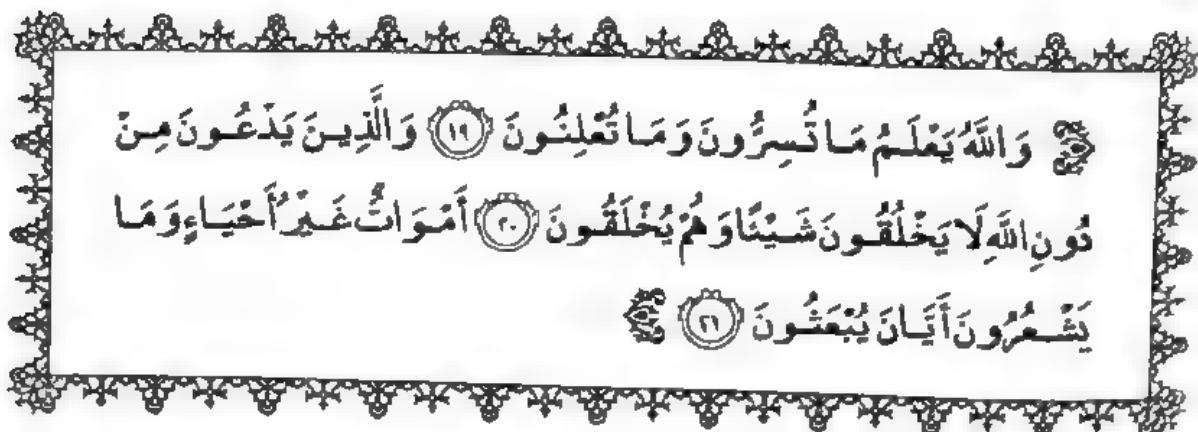 ﴿ وَاللَّهُ يَعْلَمُ مَا تُسِرُّونَ وَمَا تُعْلِنُونَ (١٩) وَالَّذِينَ يَدْعُونَ مِنْ
دُونِ اللَّهِ لَا يَخْلُقُونَ شَيْئًا وَهُمْ يُخْلَقُونَ (٢٠) أَمْوَاتٌ غَيْرُ أَحْيَاءٍ وَمَا
يَشْعُرُونَ أَيَّانَ يُبْعَثُونَ (٢١) ﴾